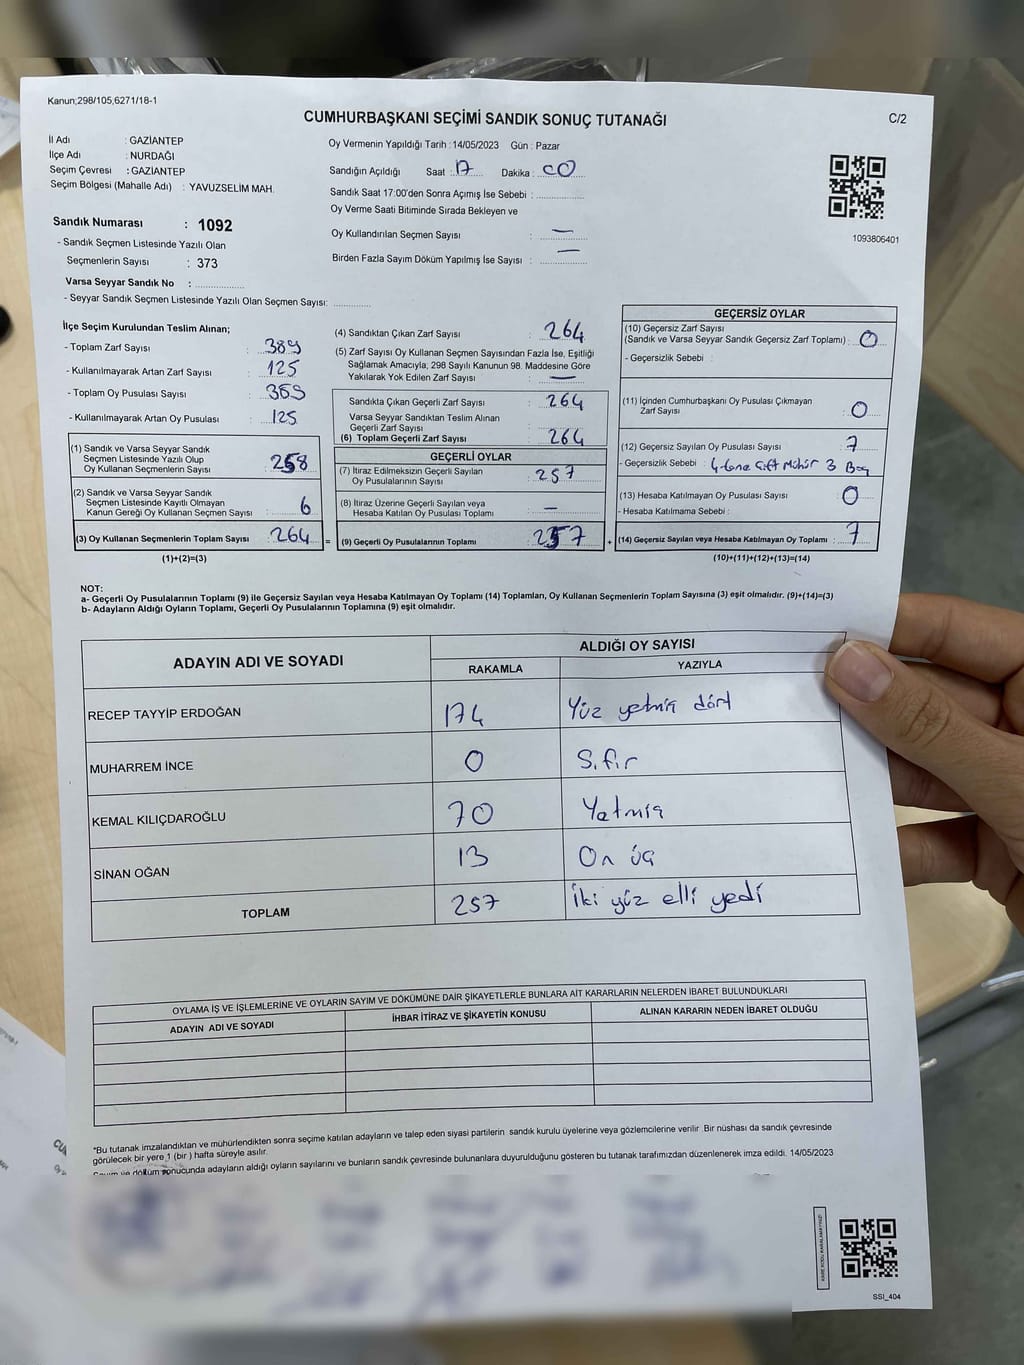 Kanun;298/105,6271/18-1
CUMHURBAŞKANI SEÇİMİ SANDIK SONUÇ TUTANAĞI
C/2
İl Adı : GAZİANTEP
İlçe Adı : NURDAĞI
Seçim Çevresi : GAZİANTEP
Seçim Bölgesi (Mahalle Adı) : YAVUZSELİM MAH.
Oy Vermenin Yapıldığı Tarih : 14/05/2023 Gün : Pazar
Sandığın Açıldığı Saat : 17 Dakika : 00
Sandık Saat 17:00'den Sonra Açımış İse Sebebi :
Oy Verme Saati Bitiminde Sırada Bekleyen ve
Oy Kullandırılan Seçmen Sayısı : —
Birden Fazla Sayım Döküm Yapılmış İse Sayısı : —
1093806401
Sandık Numarası : 1092
- Sandık Seçmen Listesinde Yazılı Olan
Seçmenlerin Sayısı : 373
Varsa Seyyar Sandık No :
- Seyyar Sandık Seçmen Listesinde Yazılı Olan Seçmen Sayısı:
İlçe Seçim Kurulundan Teslim Alınan;
- Toplam Zarf Sayısı : 389
- Kullanılmayarak Artan Zarf Sayısı : 125
- Toplam Oy Pusulası Sayısı : 389
- Kullanılmayarak Artan Oy Pusulası : 125
(1) Sandık ve Varsa Seyyar Sandık
Seçmen Listesinde Yazılı Olup
Oy Kullanan Seçmenlerin Sayısı : 258
(2) Sandık ve Varsa Seyyar Sandık
Seçmen Listesinde Kayıtlı Olmayan
Kanun Gereği Oy Kullanan Seçmen Sayısı : 6
(3) Oy Kullanan Seçmenlerin Toplam Sayısı : 264
(1)+(2)=(3)
(4) Sandıktan Çıkan Zarf Sayısı : 264
(5) Zarf Sayısı Oy Kullanan Seçmen Sayısından Fazla İse, Eşitliği
Sağlamak Amacıyla, 298 Sayılı Kanunun 98. Maddesine Göre
Yakılarak Yok Edilen Zarf Sayısı : —
Sandıkta Çıkan Geçerli Zarf Sayısı : 264
Varsa Seyyar Sandıktan Teslim Alınan
Geçerli Zarf Sayısı :
(6) Toplam Geçerli Zarf Sayısı : 264
GEÇERLİ OYLAR
(7) İtiraz Edilmeksizin Geçerli Sayılan
Oy Pusulalarının Sayısı : 257
(8) İtiraz Üzerine Geçerli Sayılan veya
Hesaba Katılan Oy Pusulası Toplamı : —
= (9) Geçerli Oy Pusulalarının Toplamı : 257 +
GEÇERSİZ OYLAR
(10) Geçersiz Zarf Sayısı
(Sandık ve Varsa Seyyar Sandık Geçersiz Zarf Toplamı) : 0
- Geçersizlik Sebebi :
(11) İçinden Cumhurbaşkanı Oy Pusulası Çıkmayan
Zarf Sayısı : 0
(12) Geçersiz Sayılan Oy Pusulası Sayısı : 7
- Geçersizlik Sebebi : 4 tane çift Mühür 3 Boş
(13) Hesaba Katılmayan Oy Pusulası Sayısı : 0
- Hesaba Katılmama Sebebi :
(14) Geçersiz Sayılan veya Hesaba Katılmayan Oy Toplamı : 7
(10)+(11)+(12)+(13)=(14)
NOT:
a- Geçerli Oy Pusulalarının Toplamı (9) ile Geçersiz Sayılan veya Hesaba Katılmayan Oy Toplamı (14) Toplamları, Oy Kullanan Seçmenlerin Toplam Sayısına (3) eşit olmalıdır. (9)+(14)=(3)
b- Adayların Aldığı Oyların Toplamı, Geçerli Oy Pusulalarının Toplamına (9) eşit olmalıdır.
ADAYIN ADI VE SOYADI
ALDIĞI OY SAYISI
RAKAMLA YAZIYLA
RECEP TAYYİP ERDOĞAN 174 Yüz yetmiş dört
MUHARREM İNCE 0 Sıfır
KEMAL KILIÇDAROĞLU 70 Yetmiş
SİNAN OĞAN 13 On üç
TOPLAM 257 İki yüz elli yedi
OYLAMA İŞ VE İŞLEMLERİNE VE OYLARIN SAYIM VE DÖKÜMÜNE DAİR ŞİKAYETLERLE BUNLARA AİT KARARLARIN NELERDEN İBARET BULUNDUKLARI
ADAYIN ADI VE SOYADI İHBAR İTİRAZ VE ŞİKAYETİN KONUSU ALINAN KARARIN NEDEN İBARET OLDUĞU
*Bu tutanak imzalandıktan ve mühürlendikten sonra seçime katılan adayların ve talep eden siyasi partilerin sandık kurulu üyelerine veya gözlemcilerine verilir .Bir nüshası da sandık çevresinde
görülecek bir yere 1 (bir ) hafta süreyle asılır.
Sayım ve döküm sonucunda adayların aldığı oyların sayılarını ve bunların sandık çevresinde bulunanlara duyurulduğunu gösteren bu tutanak tarafımızdan düzenlenerek imza edildi. 14/05/2023
SSI_404